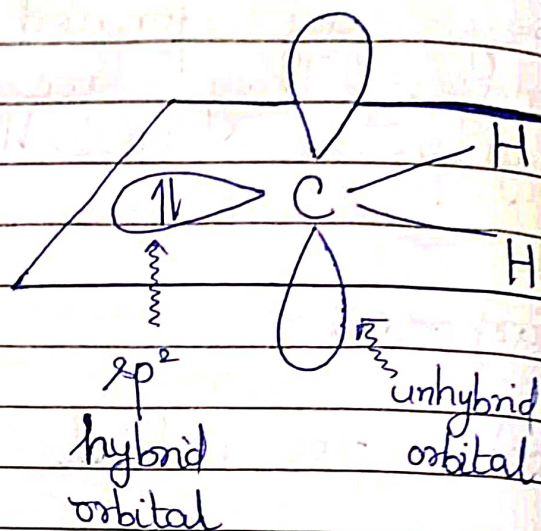 H
⥮ C
H
sp²
hybrid
orbital
unhybrid
orbital